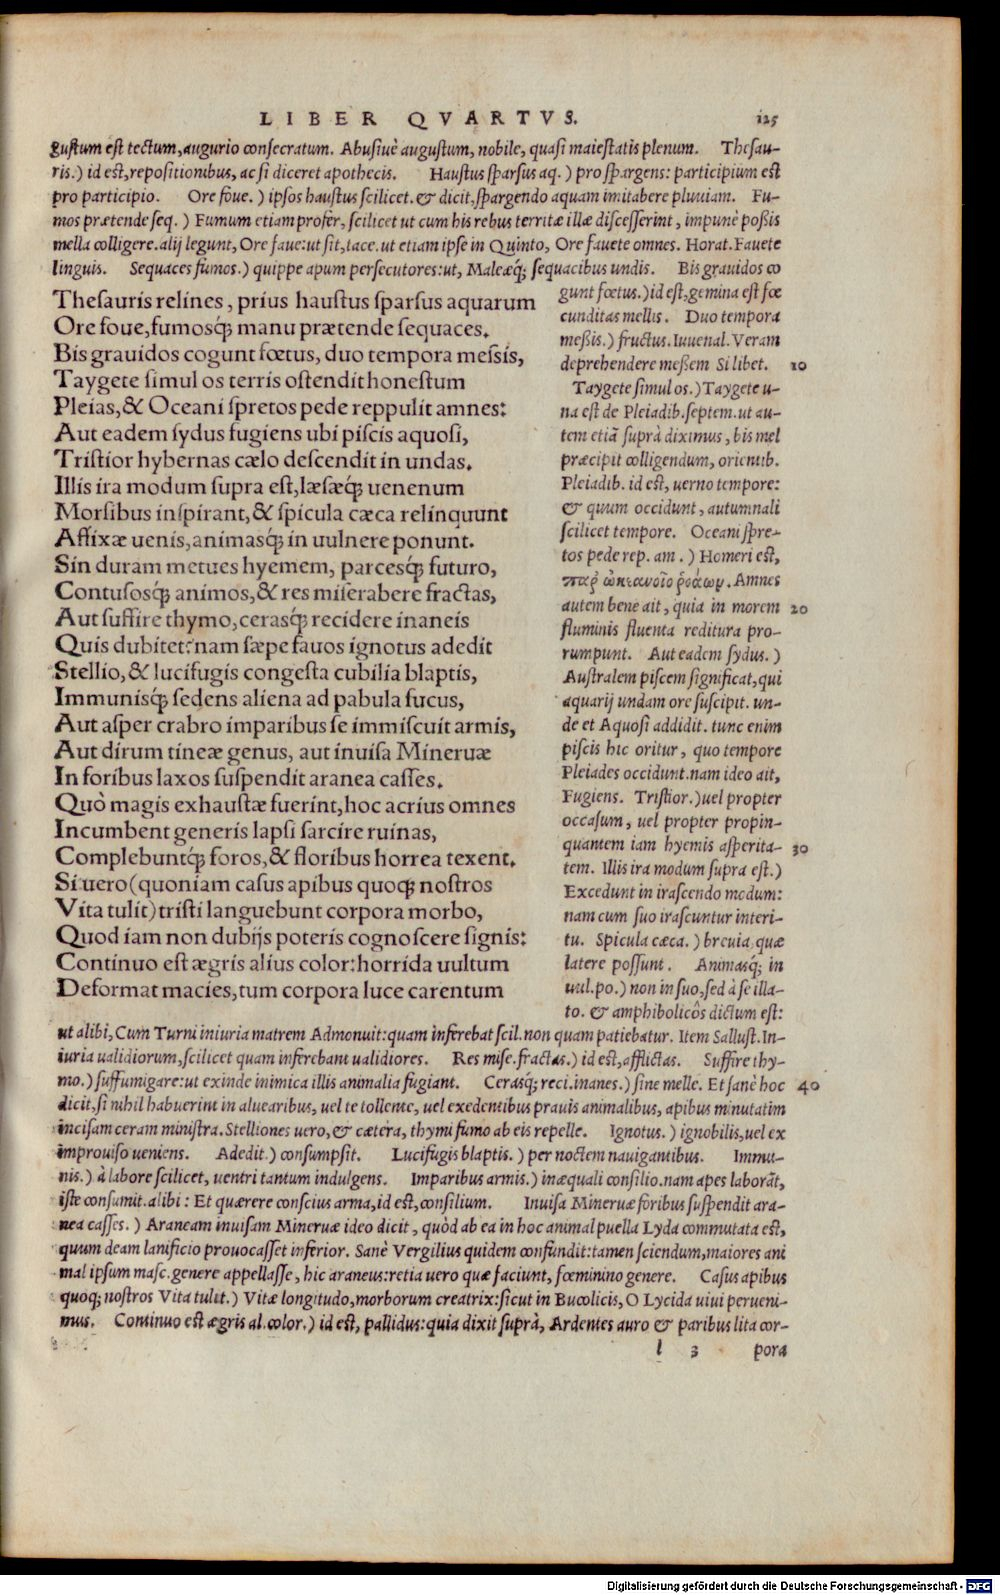 LIBER QVARTVS. 125
gustum est tectum, augurio consecratum. Abusiuè augustum, nobile, quasi maiestatis plenum. Thesau-
ris.) id est, repositionibus, ac si diceret apothecis. Haustus sparsus aq.) pro spargens: participium est
pro participio. Ore foue.) ipsos haustus scilicet. & dicit, spargendo aquam imitabere pluuiam. Fu-
mos prætende seq.) Fumum etiam profer, scilicet ut cum his rebus territæ illæ discesserint, impunè possis
mella colligere. alij legunt, Ore faue: ut sit, tace. ut etiam ipse in Quinto, Ore fauete omnes. Horat. Fauete
linguis. Sequaces fumos.) quippe apum persecutores: ut, Maleæq; sequacibus undis. Bis grauidos co
Thesauris relines, prius haustus sparsus aquarum
Ore foue, fumosq́; manu prætende sequaces.
Bis grauidos cogunt fœtus, duo tempora messis,
Taygete simul os terris ostendit honestum
Pleias, & Oceani spretos pede reppulit amnes:
Aut eadem sydus fugiens ubi piscis aquosi,
Tristior hybernas cælo descendit in undas.
Illis ira modum supra est, læsæq́; uenenum
Morsibus inspirant, & spicula cæca relinquunt
Affixæ uenis, animasq́; in uulnere ponunt.
Sin duram metues hyemem, parcesq́; futuro,
Contusosq́; animos, & res miserabere fractas,
Aut suffire thymo, cerasq́; recidere inaneis
Quis dubitet? nam sæpe fauos ignotus adedit
Stellio, & lucifugis congesta cubilia blaptis,
Immunisq́; sedens aliena ad pabula fucus,
Aut asper crabro imparibus se immiscuit armis,
Aut dirum tineæ genus, aut inuisa Mineruæ
In foribus laxos suspendit aranea casses.
Quò magis exhaustæ fuerint, hoc acrius omnes
Incumbent generis lapsi sarcire ruinas,
Complebuntq́; foros, & floribus horrea texent.
Si uero (quoniam casus apibus quoq; nostros
Vita tulit) tristi languebunt corpora morbo,
Quod iam non dubijs poteris cognoscere signis:
Continuo est ægris alius color: horrida uultum
Deformat macies, tum corpora luce carentum
gunt fœtus.) id est, gemina est fœ
cunditas mellis. Duo tempora
messis.) fructus. Iuuenal. Veram
deprehendere messem Si libet. 10
Taygete simul os.) Taygete u-
na est de Pleiadib. septem. ut au-
tem etiã suprà diximus, bis mel
præcipit colligendum, orientib.
Pleiadib. id est, uerno tempore:
& quum occidunt, autumnali
scilicet tempore. Oceani spre-
tos pede rep. am.) Homeri est,
παρ' ὠκεανοῖο ῥοάων. Amnes
autem bene ait, quia in morem 20
fluminis fluenta reditura pro-
rumpunt. Aut eadem sydus.)
Australem piscem significat, qui
aquarij undam ore suscipit. un-
de et Aquosi addidit. tunc enim
piscis hic oritur, quo tempore
Pleiades occidunt. nam ideo ait,
Fugiens. Tristior.) uel propter
occasum, uel propter propin-
quantem iam hyemis asperita- 30
tem. Illis ira modum supra est.)
Excedunt in irascendo modum:
nam cum suo irascuntur interi-
tu. Spicula cæca.) breuia, quæ
latere possunt. Animasq́; in
uul. po.) non in suo, sed à se illa-
to. & amphibolicôs dictum est:
ut alibi, Cum Turni iniuria matrem Admonuit: quam inferebat scil. non quam patiebatur. Item Sallust. In-
iuria ualidiorum, scilicet quam inferebant ualidiores. Res mise. fractas.) id est, afflictas. Suffire thy-
mo.) suffumigare: ut exinde inimica illis animalia fugiant. Cerasq́; reci. inanes.) sine melle. Et sanè hoc 40
dicit, si nihil habuerint in aluearibus, uel te tollente, uel exedentibus prauis animalibus, apibus minutatim
incisam ceram ministra. Stelliones uero, & cætera, thymi fumo ab eis repelle. Ignotus.) ignobilis, uel ex
improuiso ueniens. Adedit.) consumpsit. Lucifugis blaptis.) per noctem nauigantibus. Immu-
nis.) à labore scilicet, uentri tantum indulgens. Imparibus armis.) inæquali consilio. nam apes laborãt,
iste consumit. alibi: Et quærere conscius arma, id est, consilium. Inuisa Mineruæ foribus suspendit ara-
nea casses.) Araneam inuisam Mineruæ ideo dicit, quòd ab ea in hoc animal puella Lyda commutata est,
quum deam lanificio prouocasset inferior. Sanè Vergilius quidem confundit: tamen sciendum, maiores ani
mal ipsum masc. genere appellasse, hic araneus: retia uero quæ faciunt, fœminino genere. Casus apibus
quoq; nostros Vita tulit.) Vitæ longitudo, morborum creatrix: sicut in Bucolicis, O Lycida uiui perueni-
mus. Continuo est ægris al. color.) id est, pallidus: quia dixit suprà, Ardentes auro & paribus lita cor-
l 3 pora
Digitalisierung gefördert durch die Deutsche Forschungsgemeinschaft - DFG